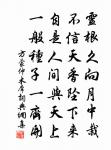 靈根久向月中栽
不信天香墜下來
自是人間與天上
一般種子一齊開
方蒙仲木犀 詞典網集